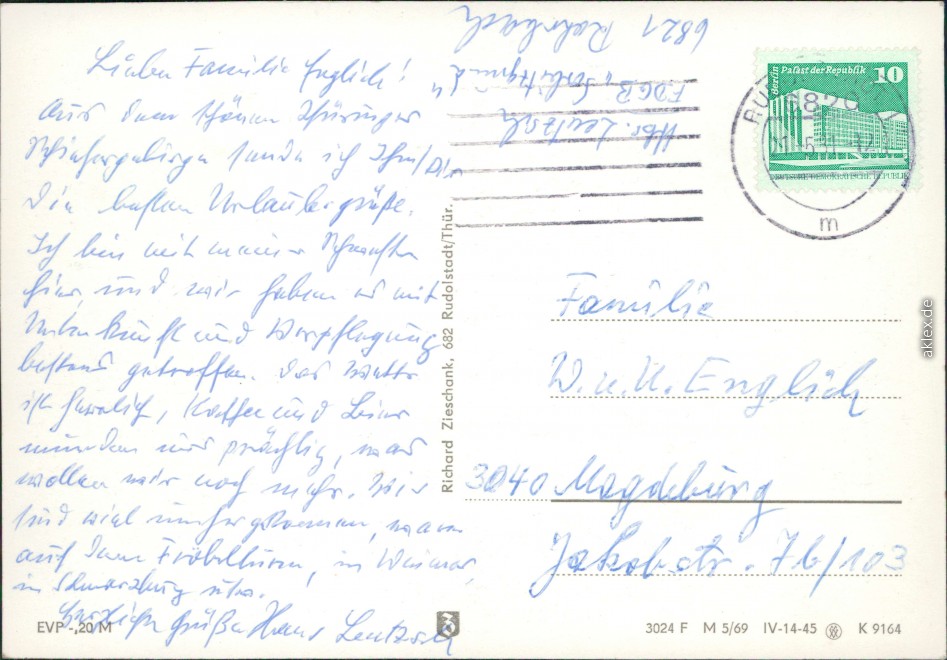 Liebe Familie Englich!
Aus dem schönen Thüringer
Schiefergebirge sende ich Ihn/Dir
die besten Urlaubergrüße.
Ich bin mit meiner Schwester
hier, und wir haben es mit
Unterkunft und Verpflegung
bestens getroffen. Das Wetter
ist herrlich, Kaffee und Bier
munden uns prächtig, was
wollen wir noch mehr. Wir
sind viel umhergekommen, waren
auf dem Fröbelturm, in Weimar,
in Schwarzburg usw.
Herzliche Grüße Hans Leutzsch
Abs. Leutzsch
FDGB
6821 Rohrbach
Berlin Palast der Republik 10
m
Familie
W. u. U. Englich
3040 Magdeburg
Jakobstr. 7b/103
Richard Zieschank, 682 Rudolstadt/Thür.
EVP -,20 M
3024 F M 5/69 IV-14-45 K 9164
aklex.de